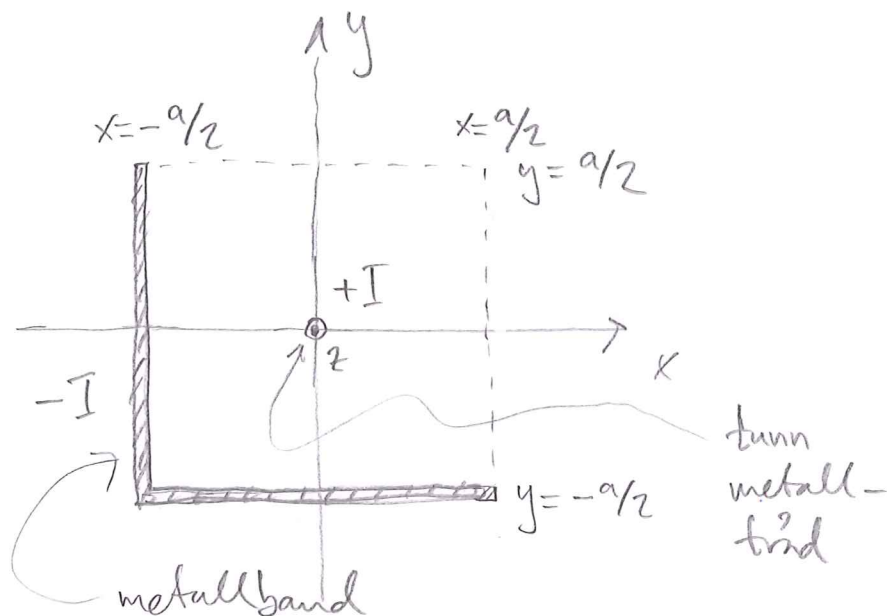 y
x=-a/2
x=a/2
y=a/2
+I
z
x
-I
tunn
metall-
tråd
y=-a/2
metallband